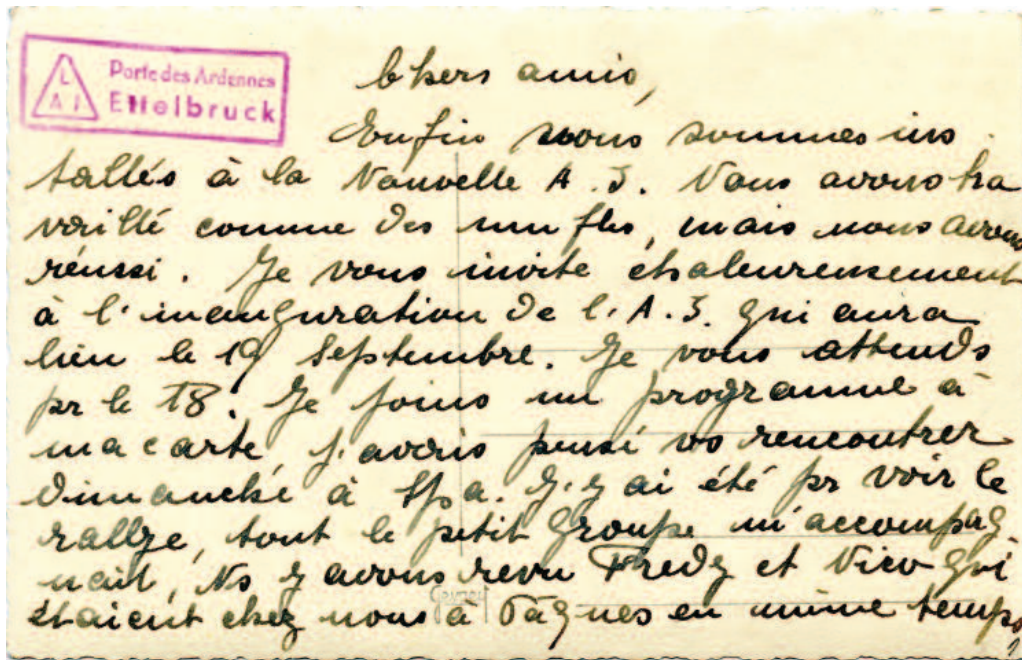 L
A J
Porte des Ardennes
Ettelbruck
Chers amis,
Enfin nous sommes ins
tallés à la Nouvelle A.J. Nous avons tra
vaillé comme des mufles, mais nous avons
réussi. Je vous invite chaleureusement
à l'inauguration de l'A.J. qui aura
lieu le 19 Septembre. Je vous attends
pr le 18. Je joins un programme à
ma carte, j'avais pensé vs rencontrer
dimanche à Spa. J'y ai été pr voir le
rallye, tout le petit groupe m'accompag
nait, Ns y avons revu Fredy et Nico qui
étaient chez nous à Pâques en même temps,
Gevaert